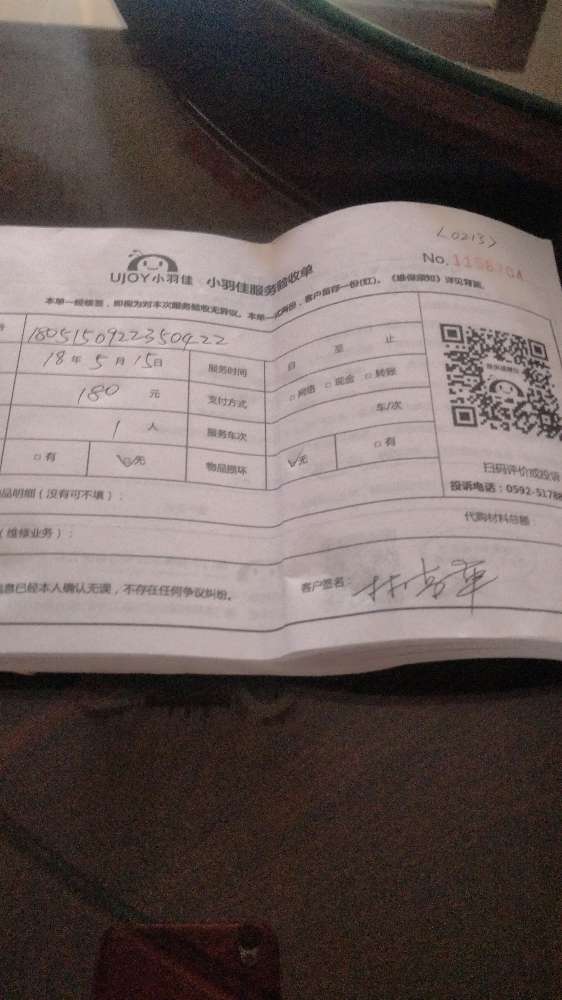 <0213>
No.1156704
UJOY小羽佳 小羽佳服务验收单
本单一经核签，即视为对本次服务验收无异议。本单一式两份，客户留存一份(红)。《维保须知》详见背面。
1805150922350422
18年5月15日 服务时间 自 至 止
180 元 支付方式 □网络 □现金 □转账
1 人 服务车次 车/次
□有 ☑无 物品损坏 ☑无 □有
扫码评价或投诉
投诉电话：0592-51788
品明细（没有可不填）：
代购材料总额
（维修业务）：
信息已经本人确认无误，不存在任何争议纠纷。 客户签名：